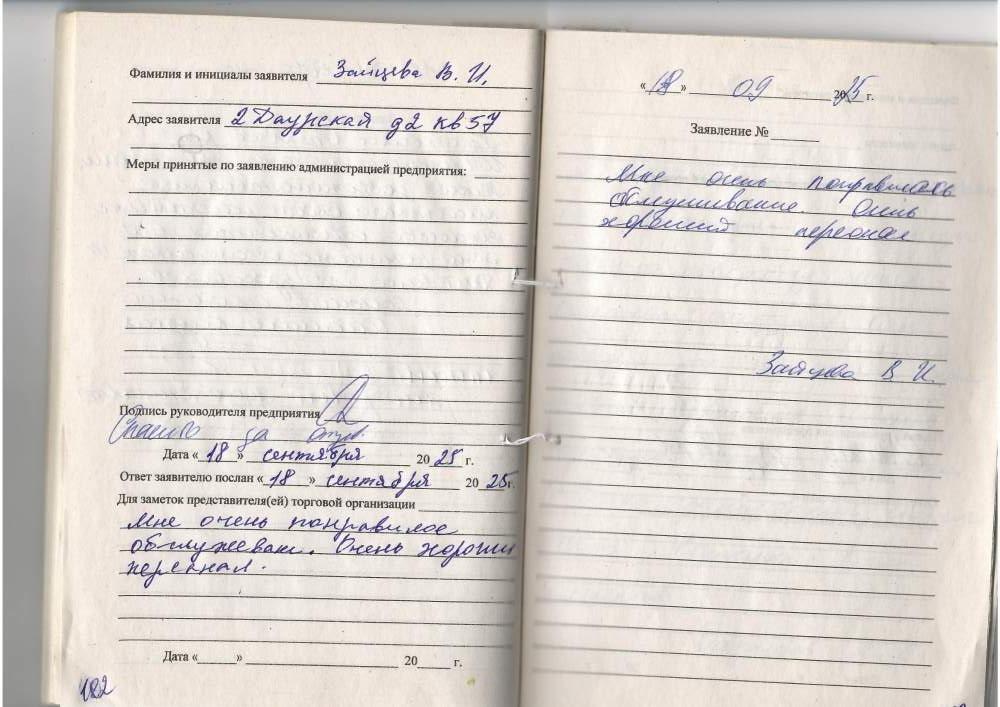 Фамилия и инициалы заявителя Зайцева В. И.
Адрес заявителя 2 Даурская д2 кв57
Меры принятые по заявлению администрацией предприятия:
Подпись руководителя предприятия
Спасибо за отзыв.
Дата «18» сентября 2025 г.
Ответ заявителю послан «18» сентября 2025г.
Для заметок представителя(ей) торговой организации
Мне очень понравилое
обслужеван. Очень хороши
персанал.
Дата «      » 20      г.
182
«18» 09 2025 г.
Заявление №
Мне очень понравилось
обслуживание. Очень
хороший персонал
Зайцева В И.